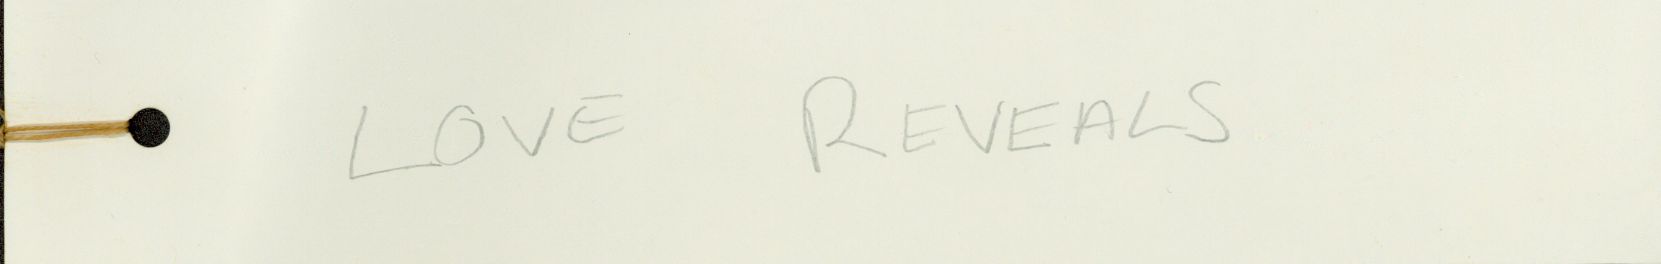 LOVE REVEALS